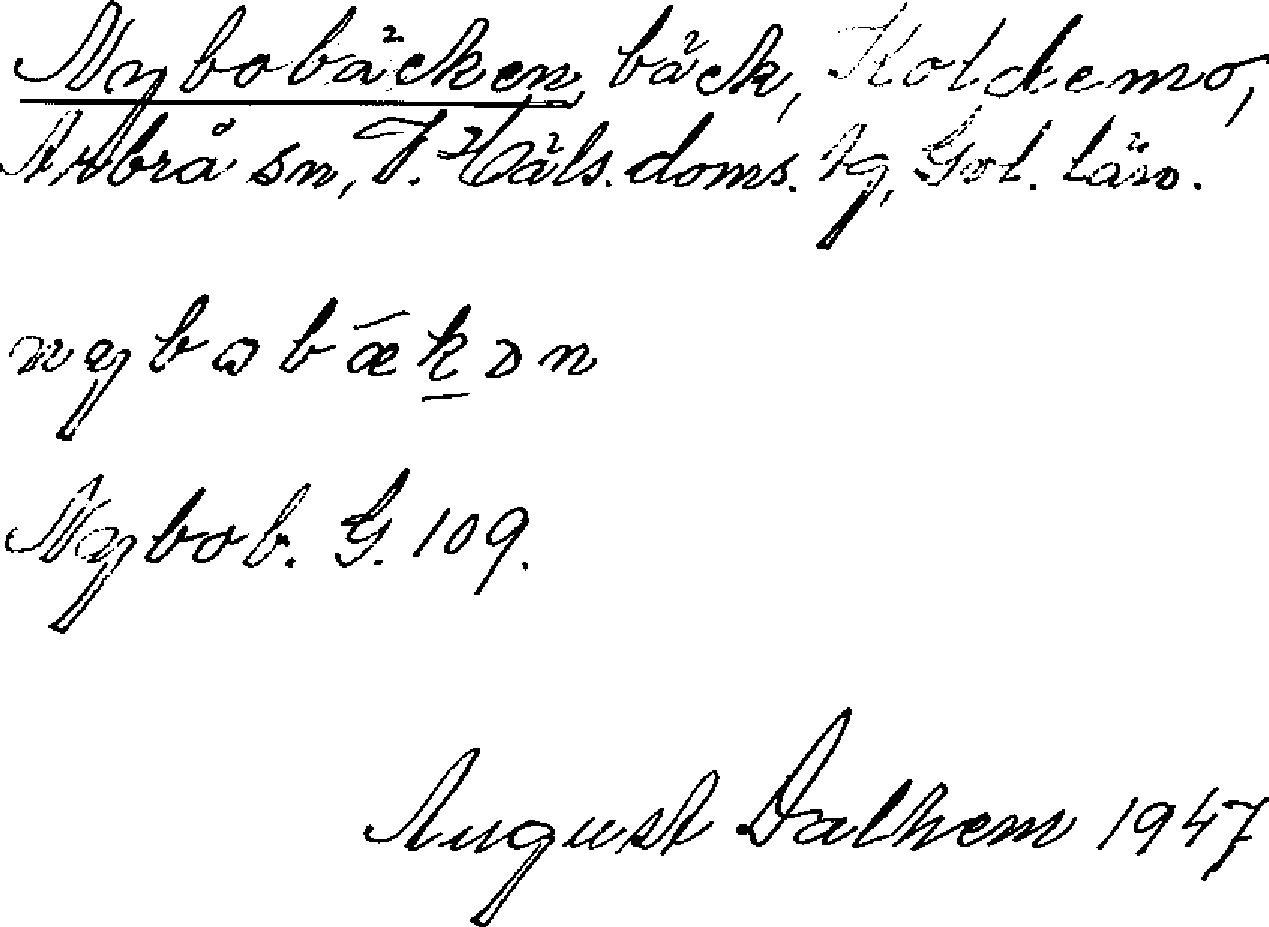 Nybobäcken, bäck, Koldemo,
Arbrå sn, V. Häls. doms. tg, Gvl. län.
Nybob. G. 109.
August Dalhem 1947